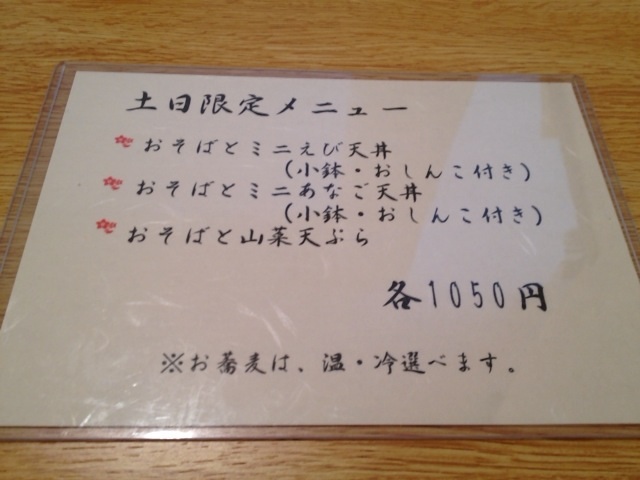 土日限定メニュー
おそばとミニえび天丼
(小鉢・おしんこ付き)
おそばとミニあなご天丼
(小鉢・おしんこ付き)
おそばと山菜天ぷら
各1050円
※お蕎麦は、温・冷選べます。